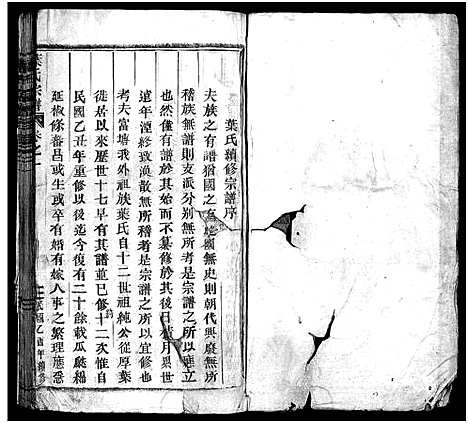 葉氏續修宗譜序
夫族之有譜猶國之有史國無史則朝代興廢無所
稽族無譜則支派分別無所考是宗譜之所以應立
也然僅有譜於其始而不纂修於其後日積月累世
遠年湮終致渙散無所稽者是宗譜之所以宜修也
考夫富墻我外祖族葉氏自十二世祖純公從厚葉
徙居以來歷世十七早有其譜並已修十二次惟自
民國乙丑年重修以後迄今復有二十餘載瓜瓞綿
延椒條蕃昌或生或卒有婚有嫁人事之繁理應悉
葉氏宗譜
民國乙酉年續修